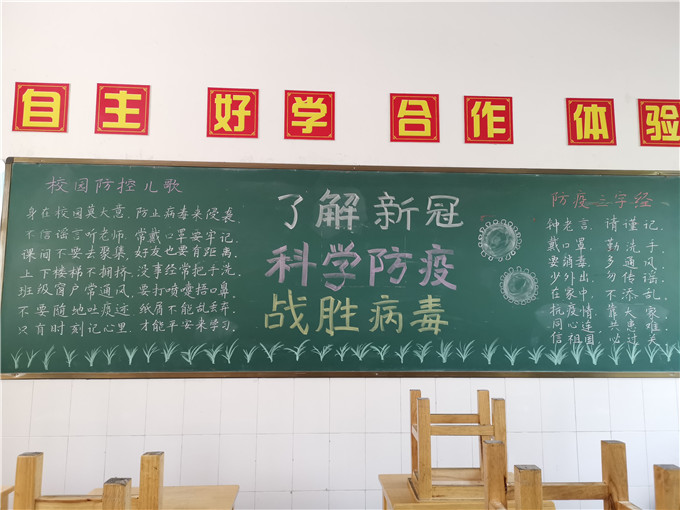 自主 好学 合作 体验
校园防控儿歌
身在校园莫大意,防止病毒来侵袭.
不信谣言听老师,常戴口罩要牢记.
课间不要去聚集,好友也要有距离.
上下楼梯不拥挤,没事经常把手洗.
班级窗户常通风,要打喷嚏捂口鼻.
不要随地吐痰迹,纸屑不能乱丢弃.
只有时刻记心里,才能平安来学习.
了解新冠
科学防疫
战胜病毒
防疫三字经
钟老言,请谨记.
戴口罩,勤洗手
要消毒,多通风.
少外出,勿传谣
在家中,不添乱
抗疫情,靠大家
同心连,共患难
信祖国,必过关